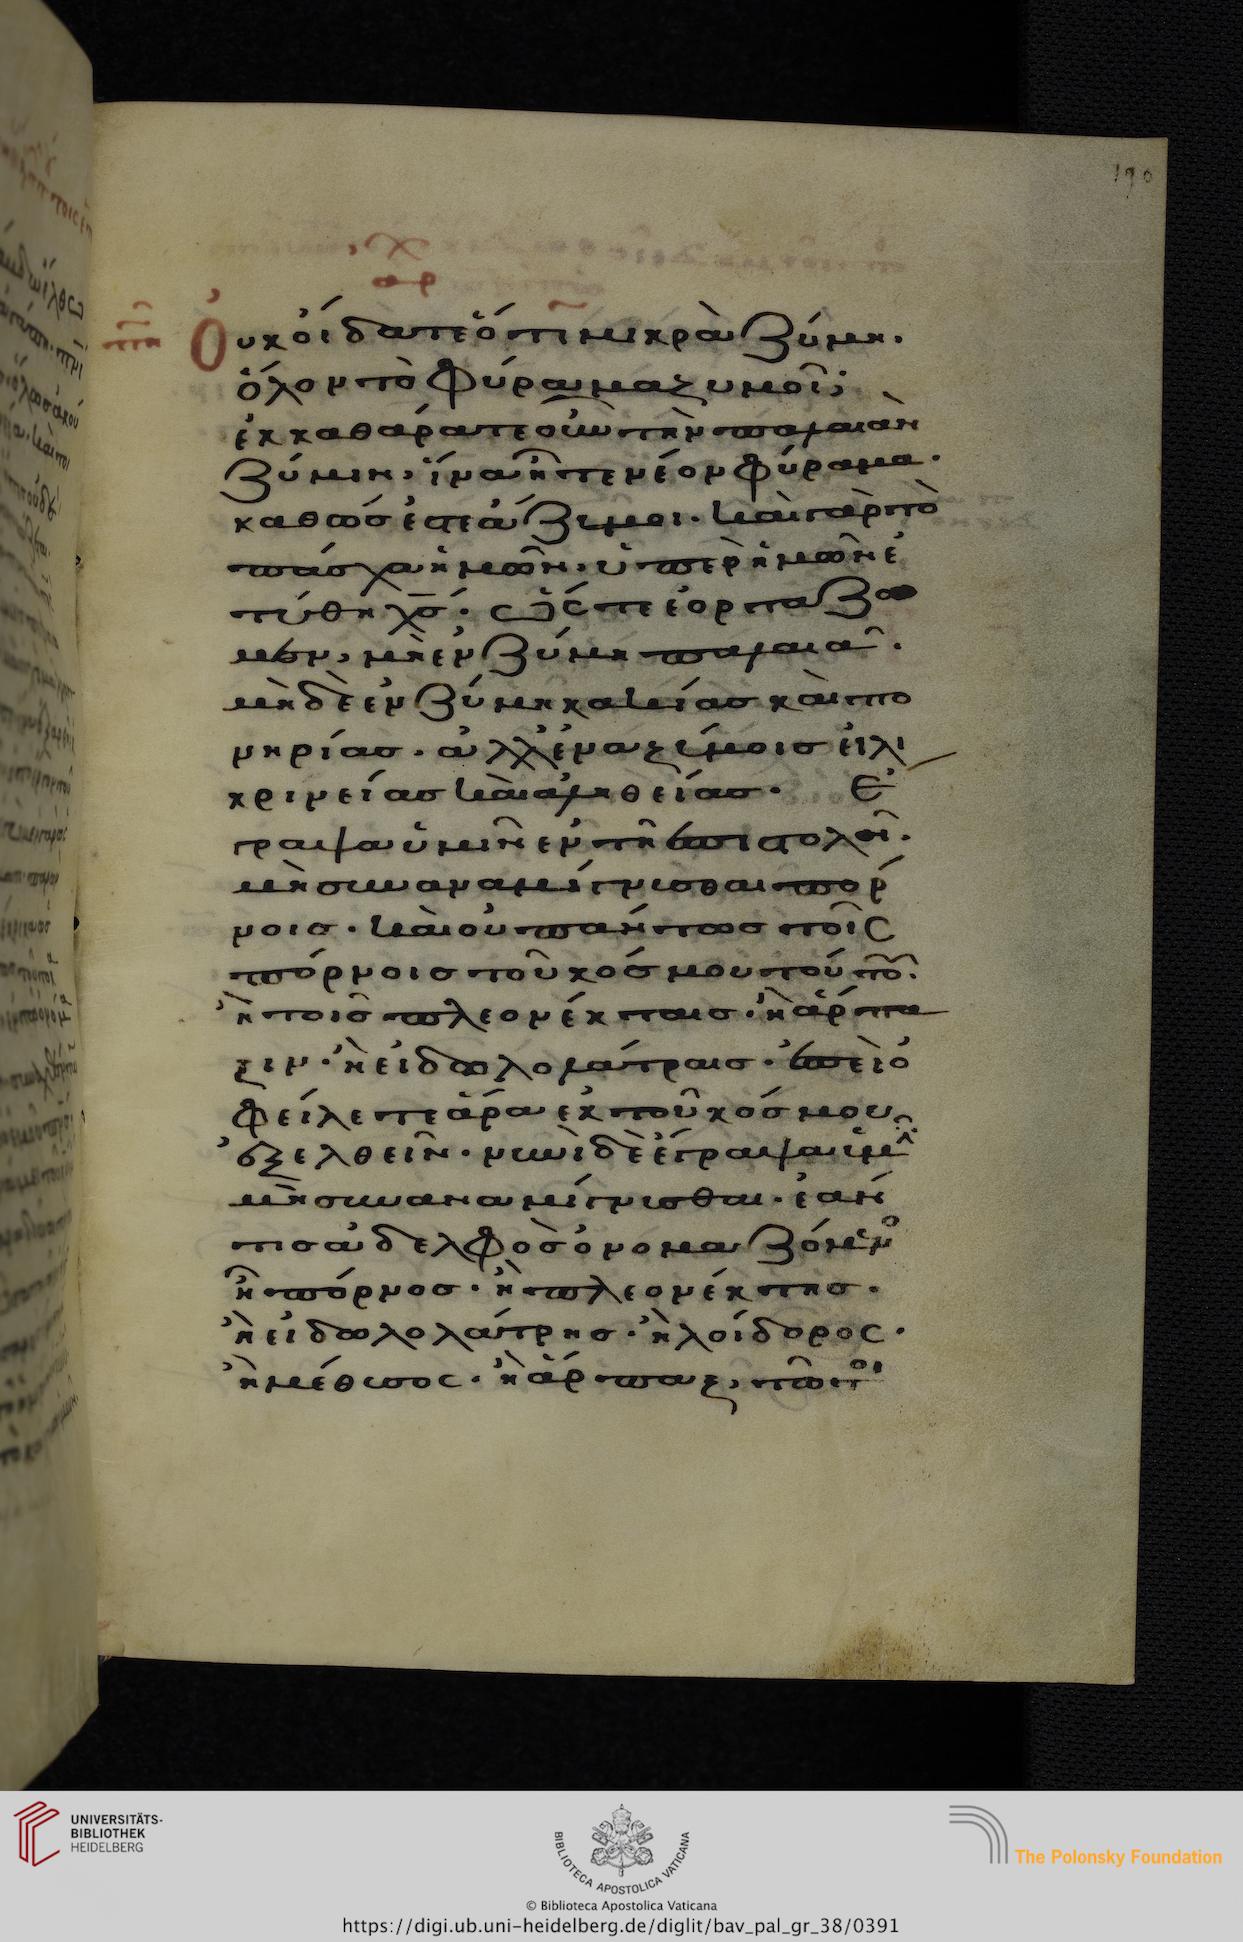 190
χ
αρ
Οὐκ οἴδατε ὅτι μικρὰ ζύμη.
ὅλον τὸ φύραμα ζυμοῖ;
ἐκκαθάρατε οὖν τὴν παλαιὰν
ζύμην, ἵνα ἦτε νέον φύραμα.
καθώς ἐστε ἄζυμοι. καὶ γὰρ τὸ
πάσχα ἡμῶν. ὑπὲρ ἡμῶν ἐ
τύθη χς. ὥστε ἑορτάζω
μεν, μὴ ἐν ζύμη παλαιᾶ.
μὴ δὲ ἐν ζύμη κακίας καὶ πο
νηρίας. ἀλλ' ἐν ἀζύμοις εἰλι
κρινείας καὶ ἀληθείας. Ἔ
γραψα ὑμῖν ἐν τῆ ἐπιστολῆ.
μὴ συναναμίγνυσθαι πόρ
νοις. καὶ οὐ πάντως τοῖς
πόρνοις τοῦ κόσμου τούτου.
ἢ τοῖς πλεονέκταις. ἢ ἅρπα
ξιν. ἢ εἰδωλολάτραις. ἐπεὶ ὀ
φείλετε ἄρα ἐκ τοῦ κόσμου
ἐξελθεῖν. νυνὶ δὲ ἔγραψα ὑμῖν
μὴ συναναμίγνυσθαι. ἐάν
τις ἀδελφὸς ὀνομαζόμενος
ἦ πόρνος. ἢ πλεονέκτης.
ἢ εἰδωλολάτρης. ἢ λοίδορος.
ἢ μέθυσος. ἢ ἅρπαξ, τῶ τοι
UNIVERSITÄTS-
BIBLIOTHEK
HEIDELBERG
BIBLIOTECA APOSTOLICA VATICANA
The Polonsky Foundation
© Biblioteca Apostolica Vaticana
https://digi.ub.uni-heidelberg.de/diglit/bav_pal_gr_38/0391